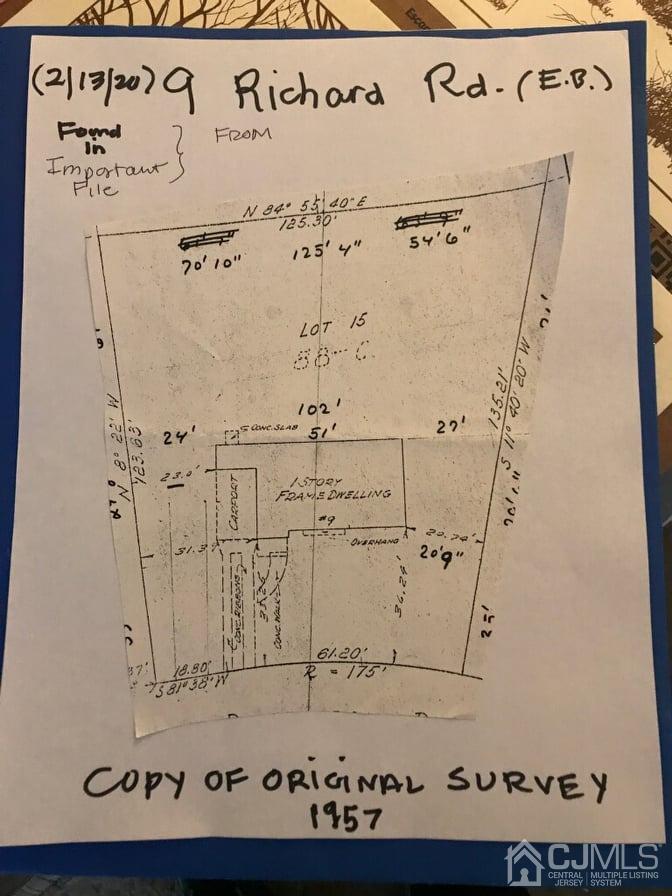 Escor
(2/13/20) 9 Richard Rd. (E.B.)
Found
in
Important
File
FROM
N 84° 55' 40" E
125.30'
70' 10"
125' 4"
54' 6"
LOT 15
88-C
102'
24'
CONC. SLAB
51'
27'
N 8° 22' W
123.63'
135.21'
S 11° 40' 20" W
23.0'
1 STORY
FRAME DWELLING
CARPORT
#9
OVERHANG
31.37
20.74'
20'9"
CONC. RIBBONS
CONC. WALK
36.24'
25'
37'
18.80'
61.20'
S 81° 38' W
R = 175'
COPY OF ORIGINAL SURVEY
1957
CJMLS
CENTRAL JERSEY MULTIPLE LISTING SYSTEM